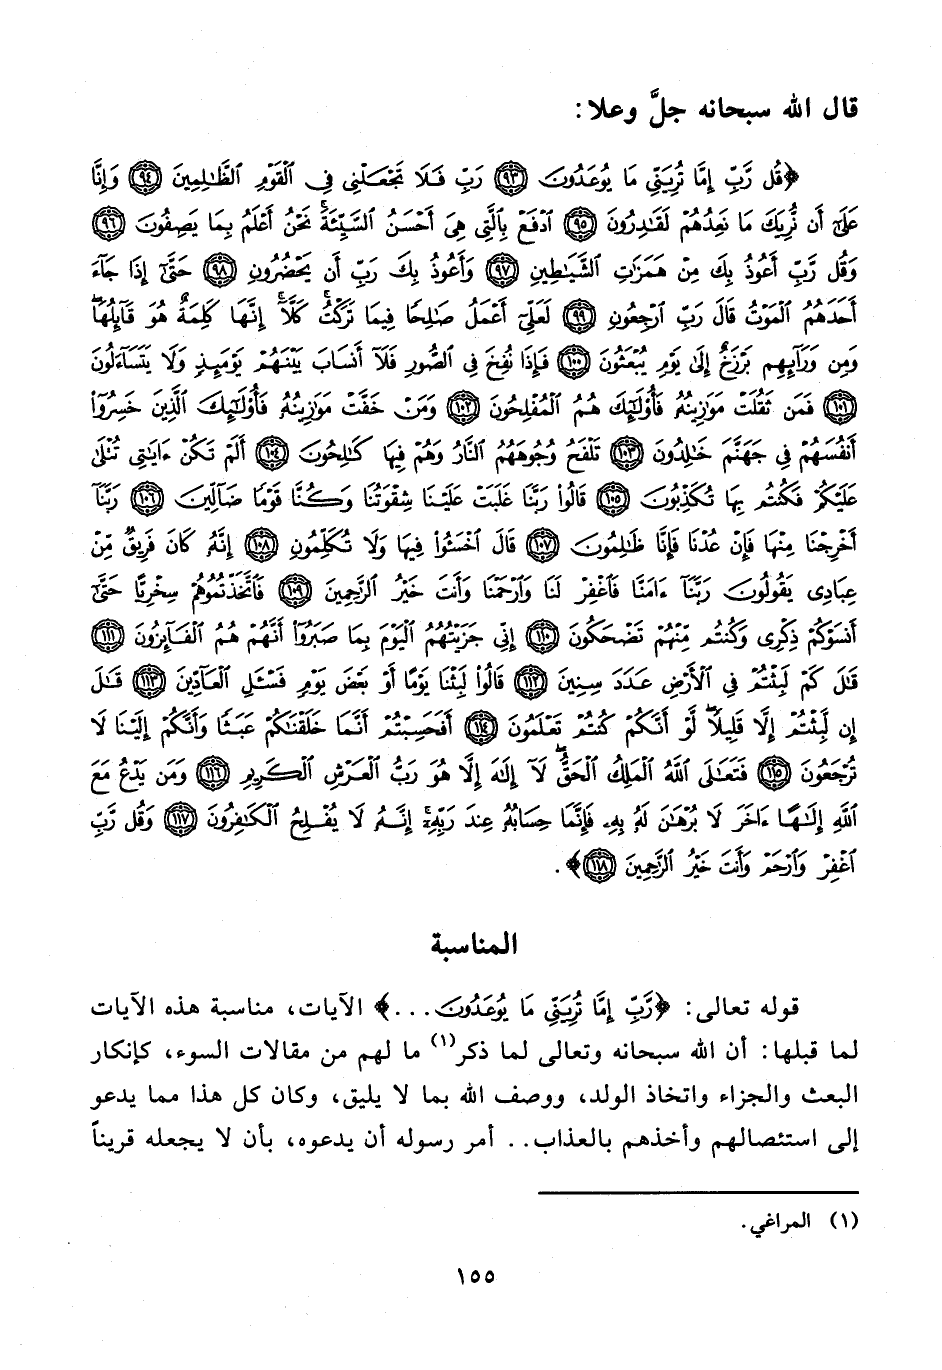 قال الله سبحانه جلَّ وعلا:
﴿قُل رَّبِّ إِمَّا تُرِيَنِّي مَا يُوعَدُونَ ٩٣ رَبِّ فَلَا تَجْعَلْنِي فِي الْقَوْمِ الظَّٰلِمِينَ ٩٤ وَإِنَّا
عَلَىٰٓ أَن نُّرِيَكَ مَا نَعِدُهُمْ لَقَٰدِرُونَ ٩٥ ادْفَعْ بِالَّتِي هِيَ أَحْسَنُ السَّيِّئَةَ ۚ نَحْنُ أَعْلَمُ بِمَا يَصِفُونَ ٩٦
وَقُل رَّبِّ أَعُوذُ بِكَ مِنْ هَمَزَٰتِ الشَّيَٰطِينِ ٩٧ وَأَعُوذُ بِكَ رَبِّ أَن يَحْضُرُونِ ٩٨ حَتَّىٰٓ إِذَا جَآءَ
أَحَدَهُمُ الْمَوْتُ قَالَ رَبِّ ارْجِعُونِ ٩٩ لَعَلِّيٓ أَعْمَلُ صَٰلِحًا فِيمَا تَرَكْتُ ۚ كَلَّآ ۚ إِنَّهَا كَلِمَةٌ هُوَ قَآئِلُهَا ۖ
وَمِن وَرَآئِهِم بَرْزَخٌ إِلَىٰ يَوْمِ يُبْعَثُونَ ١٠٠ فَإِذَا نُفِخَ فِي الصُّورِ فَلَآ أَنسَابَ بَيْنَهُمْ يَوْمَئِذٍ وَلَا يَتَسَآءَلُونَ
١٠١ فَمَن ثَقُلَتْ مَوَٰزِينُهُۥ فَأُو۟لَٰٓئِكَ هُمُ الْمُفْلِحُونَ ١٠٢ وَمَنْ خَفَّتْ مَوَٰزِينُهُۥ فَأُو۟لَٰٓئِكَ الَّذِينَ خَسِرُوٓا۟
أَنفُسَهُمْ فِي جَهَنَّمَ خَٰلِدُونَ ١٠٣ تَلْفَحُ وُجُوهَهُمُ النَّارُ وَهُمْ فِيهَا كَٰلِحُونَ ١٠٤ أَلَمْ تَكُنْ ءَايَٰتِي تُتْلَىٰ
عَلَيْكُمْ فَكُنتُم بِهَا تُكَذِّبُونَ ١٠٥ قَالُوا۟ رَبَّنَا غَلَبَتْ عَلَيْنَا شِقْوَتُنَا وَكُنَّا قَوْمًا ضَآلِّينَ ١٠٦ رَبَّنَآ
أَخْرِجْنَا مِنْهَا فَإِنْ عُدْنَا فَإِنَّا ظَٰلِمُونَ ١٠٧ قَالَ اخْسَـُٔوا۟ فِيهَا وَلَا تُكَلِّمُونِ ١٠٨ إِنَّهُۥ كَانَ فَرِيقٌ مِّنْ
عِبَادِي يَقُولُونَ رَبَّنَآ ءَامَنَّا فَاغْفِرْ لَنَا وَارْحَمْنَا وَأَنتَ خَيْرُ الرَّٰحِمِينَ ١٠٩ فَاتَّخَذْتُمُوهُمْ سِخْرِيًّا حَتَّىٰٓ
أَنسَوْكُمْ ذِكْرِي وَكُنتُم مِّنْهُمْ تَضْحَكُونَ ١١٠ إِنِّي جَزَيْتُهُمُ الْيَوْمَ بِمَا صَبَرُوٓا۟ أَنَّهُمْ هُمُ الْفَآئِزُونَ ١١١
قَٰلَ كَمْ لَبِثْتُمْ فِي الْأَرْضِ عَدَدَ سِنِينَ ١١٢ قَالُوا۟ لَبِثْنَا يَوْمًا أَوْ بَعْضَ يَوْمٍ فَسْـَٔلِ الْعَآدِّينَ ١١٣ قَٰلَ
إِن لَّبِثْتُمْ إِلَّا قَلِيلًا ۖ لَّوْ أَنَّكُمْ كُنتُمْ تَعْلَمُونَ ١١٤ أَفَحَسِبْتُمْ أَنَّمَا خَلَقْنَٰكُمْ عَبَثًا وَأَنَّكُمْ إِلَيْنَا لَا
تُرْجَعُونَ ١١٥ فَتَعَٰلَى اللَّهُ الْمَلِكُ الْحَقُّ ۖ لَآ إِلَٰهَ إِلَّا هُوَ رَبُّ الْعَرْشِ الْكَرِيمِ ١١٦ وَمَن يَدْعُ مَعَ
اللَّهِ إِلَٰهًا ءَاخَرَ لَا بُرْهَٰنَ لَهُۥ بِهِۦ فَإِنَّمَا حِسَابُهُۥ عِندَ رَبِّهِۦٓ ۚ إِنَّهُۥ لَا يُفْلِحُ الْكَٰفِرُونَ ١١٧ وَقُل رَّبِّ
اغْفِرْ وَارْحَمْ وَأَنتَ خَيْرُ الرَّٰحِمِينَ ١١٨﴾.
المناسبة
قوله تعالى: ﴿رَّبِّ إِمَّا تُرِيَنِّي مَا يُوعَدُونَ...﴾ الآيات، مناسبة هذه الآيات
لما قبلها: أن الله سبحانه وتعالى لما ذكر(١) ما لهم من مقالات السوء، كإنكار
البعث والجزاء واتخاذ الولد، ووصف الله بما لا يليق، وكان كل هذا مما يدعو
إلى استئصالهم وأخذهم بالعذاب.. أمر رسوله أن يدعوه، بأن لا يجعله قريناً
(١) المراغي.
١٥٥